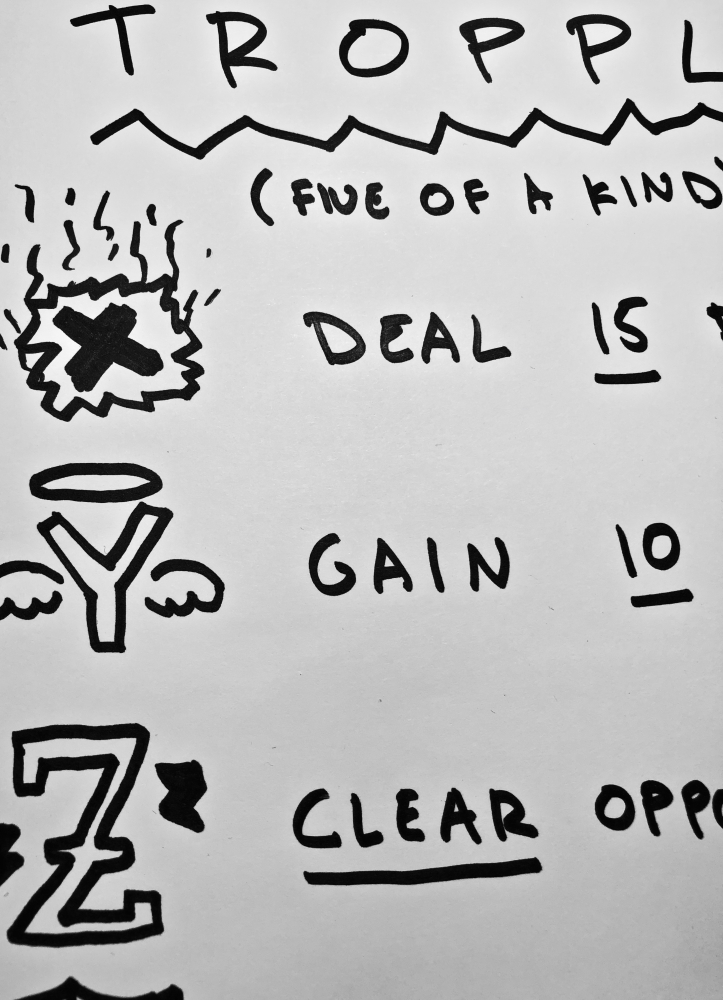 TROPPL
(FIVE OF A KIND)
X DEAL 15
Y GAIN 10
Z CLEAR OPPO